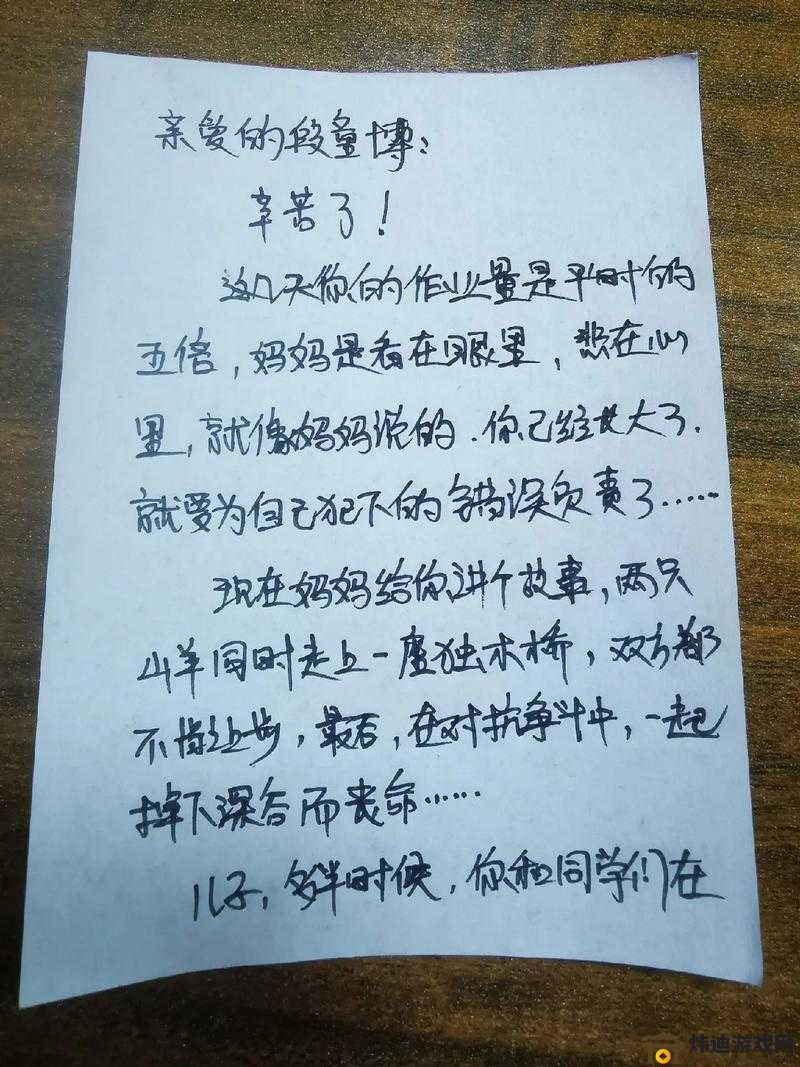 亲爱的段量博：
辛苦了！
这几天你的作业量是平时的
五倍，妈妈是看在眼里，愁在心
里，就像妈妈说的．你已经长大了．
就要为自己犯下的错误负责了……
现在妈妈给你讲个故事，两只
山羊同时走上一座独木桥，双方都
不肯让步，最后，在对抗争斗中，一起
掉下深谷而丧命……
儿子，多半时候，你和同学们在
炜迪游戏网